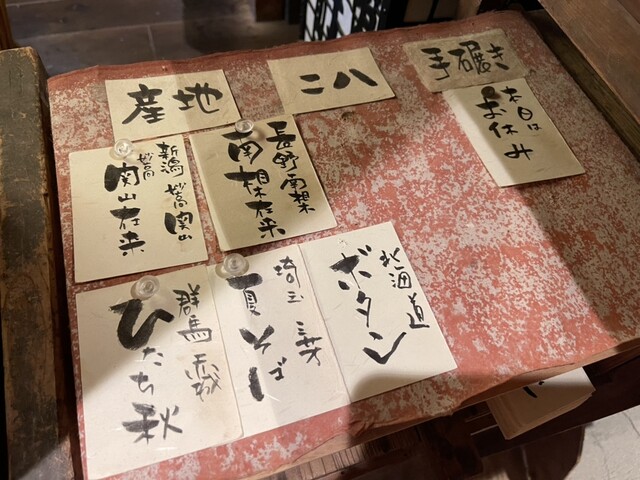 産地
二八
手碾き
本日は
お休み
長野南相木
南相木在来
新潟 妙高 関山
妙高
関山在来
北海道
ボタン
埼玉 三芳
夏そば
群馬 赤城
ひたち秋